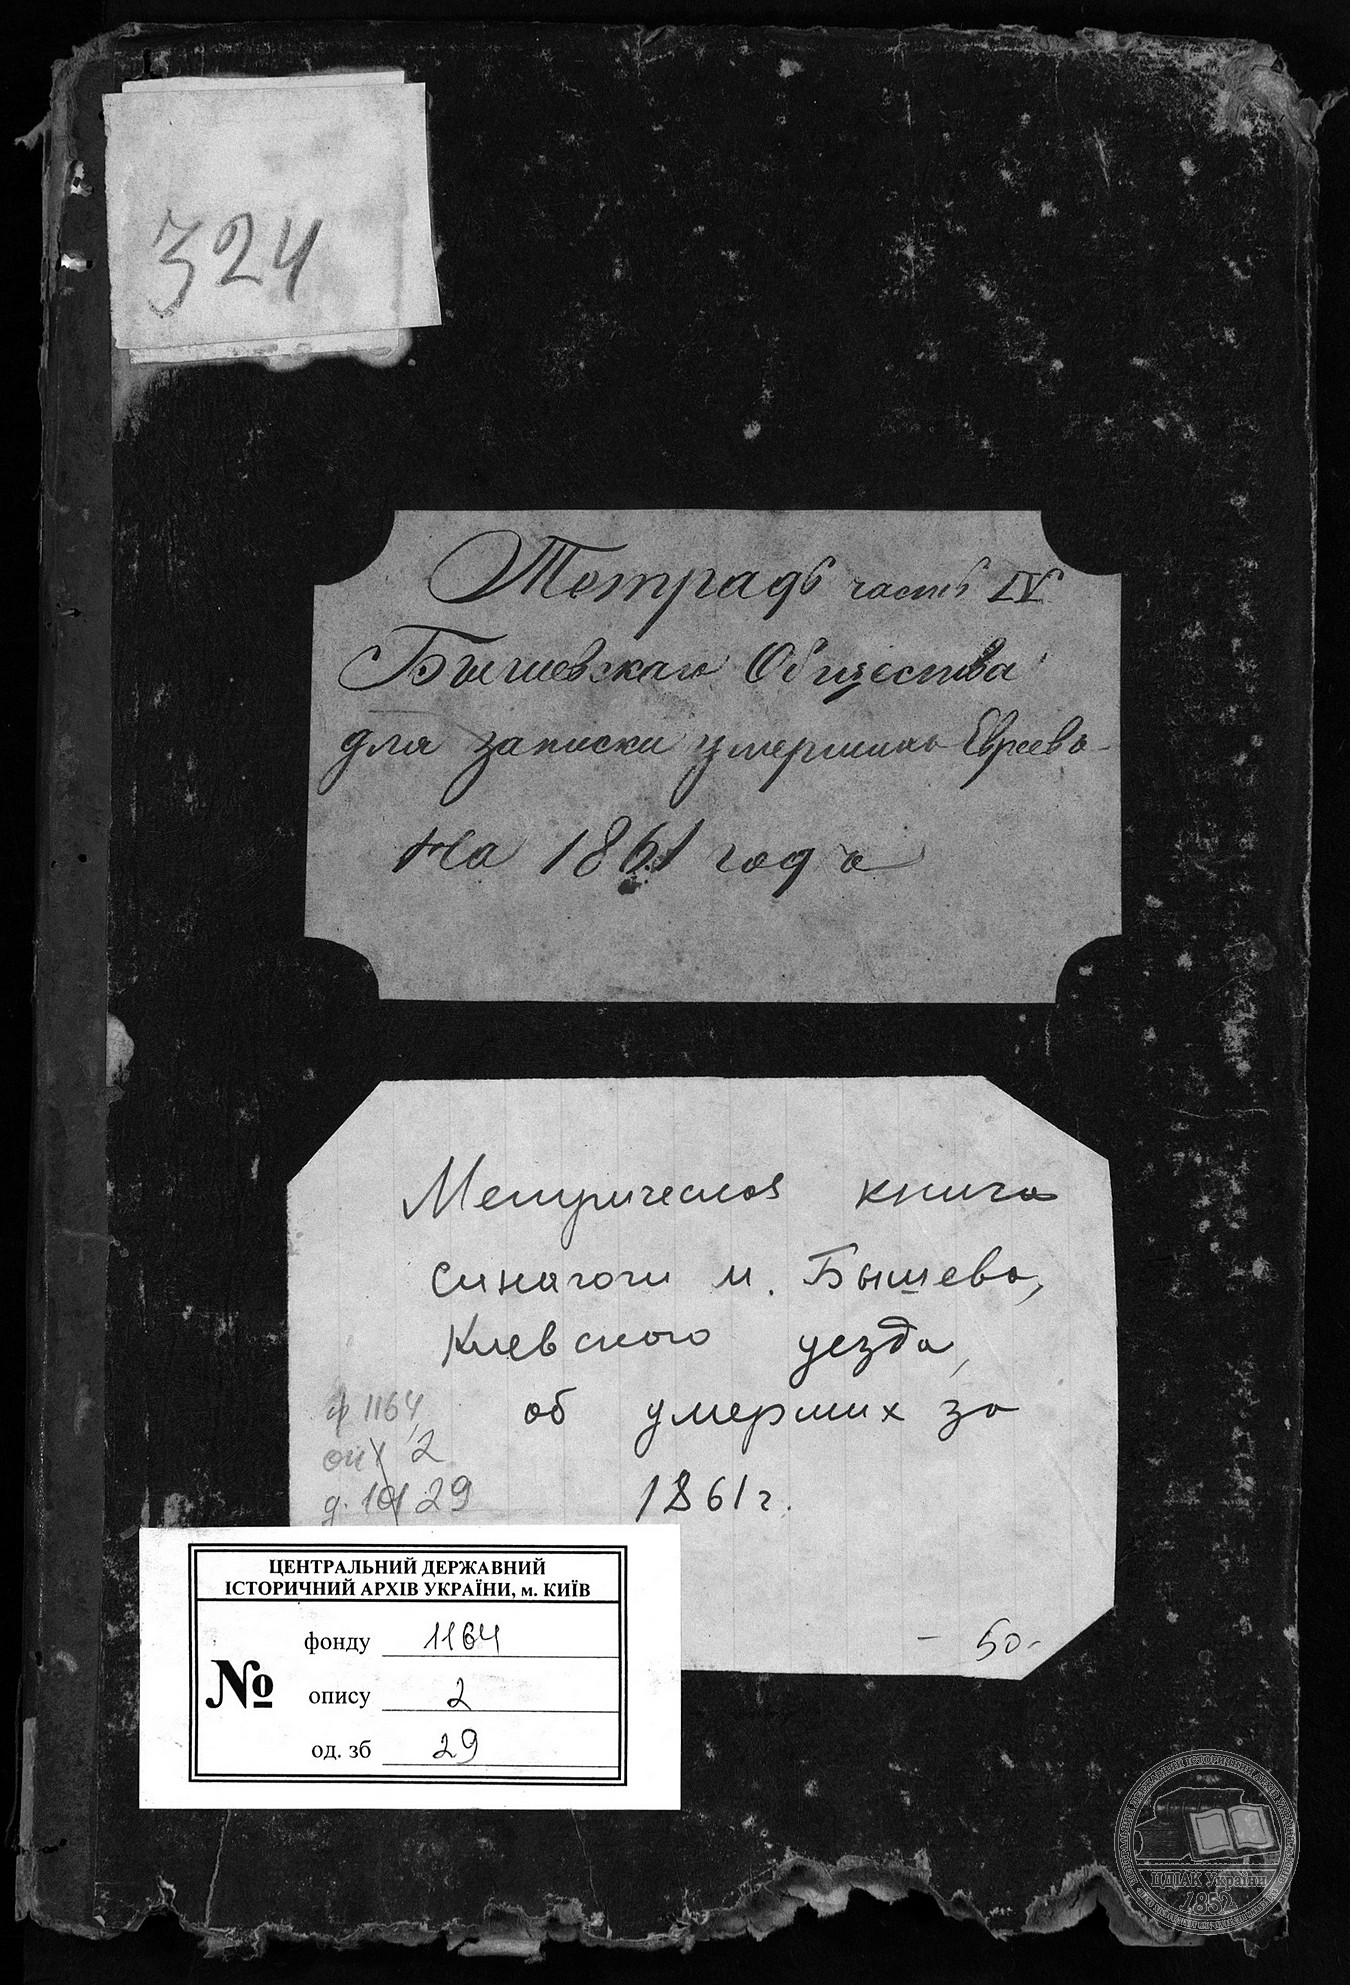 324
Тетрадь часть IV
Бышевскаго Общества
для записки умершихъ Евреевъ
На 1861 годъ
Метрическая книга
синагоги м. Бышева,
Киевского уезда,
об умерших за
1861 г.
ф 1164
оп 1 2
д. 101 29
- 50 -
ЦЕНТРАЛЬНИЙ ДЕРЖАВНИЙ
ІСТОРИЧНИЙ АРХІВ УКРАЇНИ, м. КИЇВ
№
фонду 1164
опису 2
од. зб 29
ЦДІАК України
1852